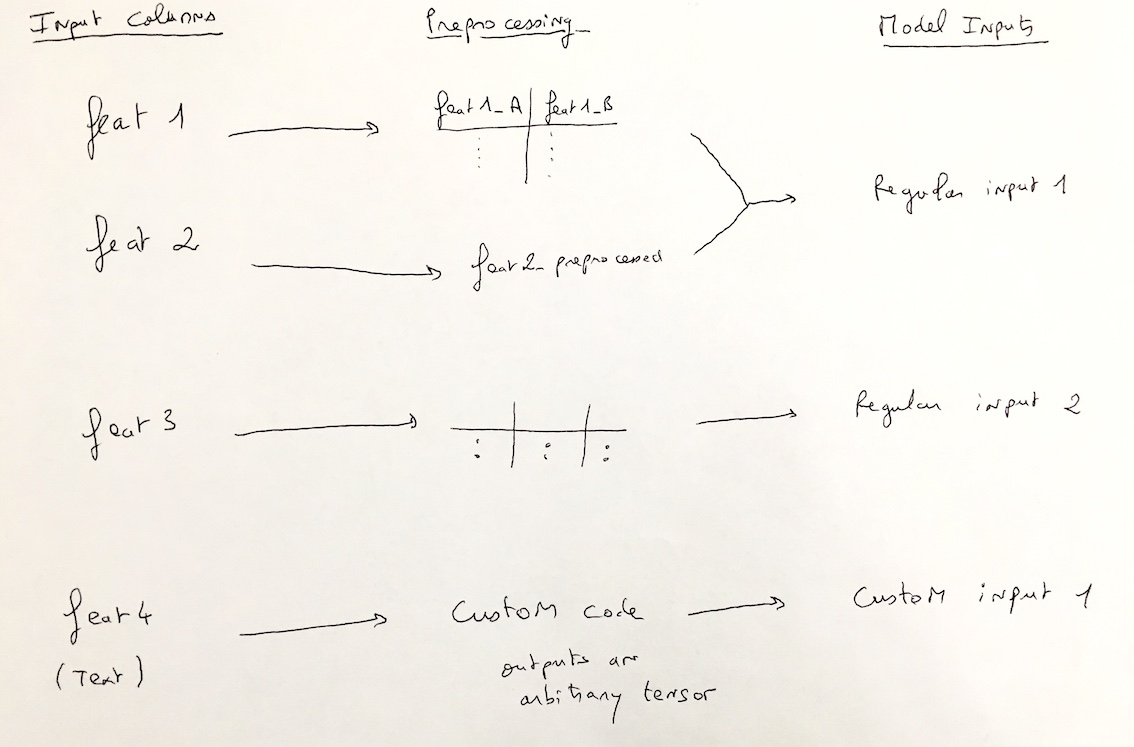 Input Columns
Preprocessing
Model Inputs
feat 1
feat 1_A
feat 1_B
Regular input 1
feat 2
feat 2_preprocessed
feat 3
Regular input 2
feat 4
(Text)
Custom code
outputs are
arbitrary tensor
Custom input 1